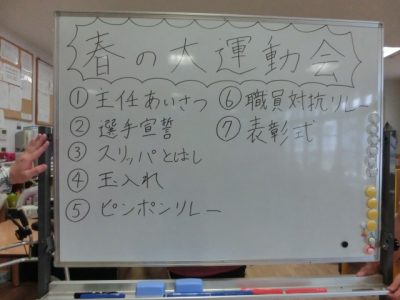 春の大運動会
① 主任あいさつ
② 選手宣誓
③ スリッパとばし
④ 玉入れ
⑤ ピンポンリレー
⑥ 職員対抗リレー
⑦ 表彰式